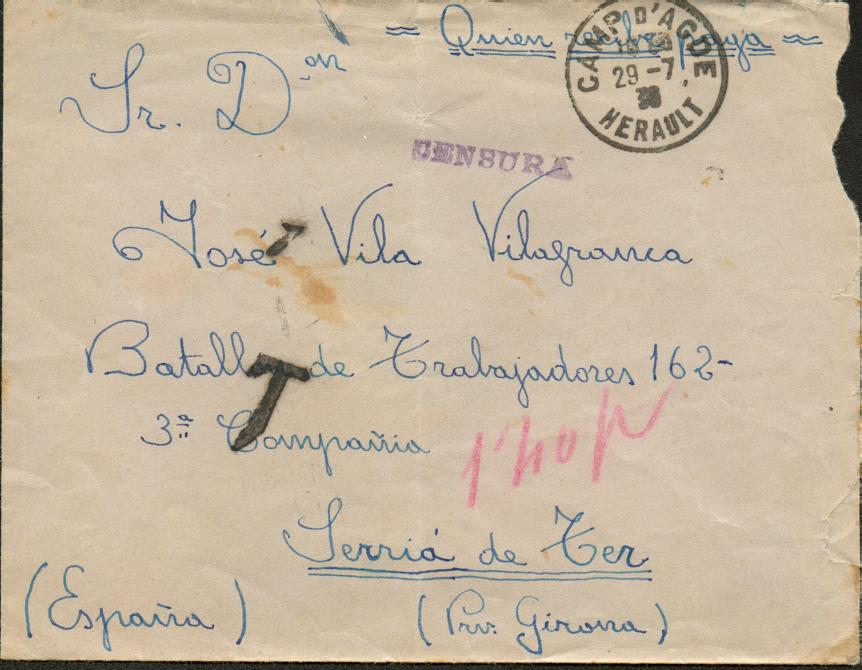 = Quien recibe paga =
CAMP D'AGDE
29-7
HERAULT
Sr. Don
CENSURA
José Vila Vilafranca
T
Batallón de Trabajadores 162-
3ª Compañia
Serriá de Ter
(España)
(Prv. Girona)